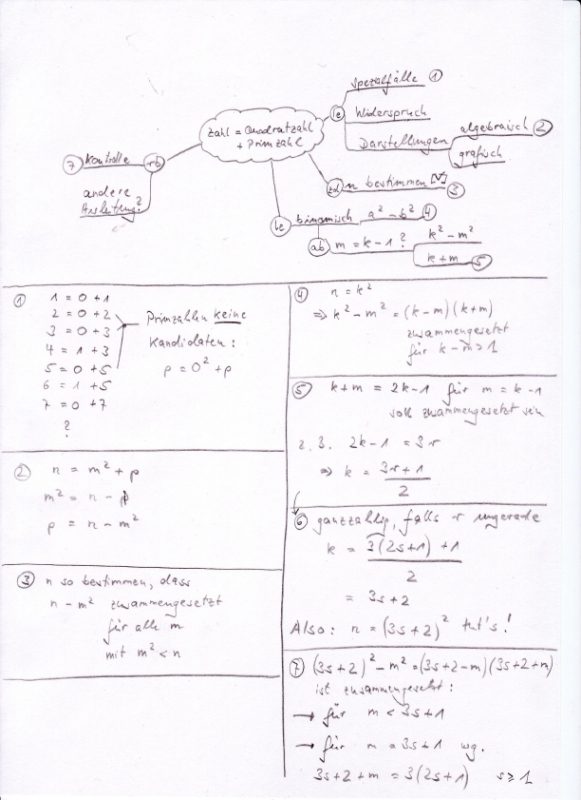 Spezialfälle ①
le
Widerspruch
Darstellungen
algebraisch ②
grafisch
Zahl = Quadratzahl
+ Primzahl
⑦ Kontrolle
rb
andere
Anleitung?
n bestimmen
③
le binomisch a² - b² ④
ab m = k - 1 ?
k² - m²
k + m ⑤
①
1 = 0 + 1
2 = 0 + 2
3 = 0 + 3
4 = 1 + 3
5 = 0 + 5
6 = 1 + 5
7 = 0 + 7
?
Primzahlen keine
Kandidaten:
p = 0² + p
② n = m² + p
m² = n - p
p = n - m²
③ n so bestimmen, dass
n - m² zusammengesetzt
für alle m
mit m² < n
④ n = k²
⇒ k² - m² = (k - m)(k + m)
zusammengesetzt
für k - m > 1
⑤ k + m = 2k - 1 für m = k - 1
soll zusammengesetzt sein
z. B. 2k - 1 = 3r
⇒ k = 3r + 1
2
⑥ ganzzahlig, falls r ungerade
k = 3(2s + 1) + 1
2
= 3s + 2
Also: n = (3s + 2)² tut's!
⑦ (3s + 2)² - m² = (3s + 2 - m)(3s + 2 + m)
ist zusammengesetzt:
→ für m < 3s + 1
→ für m = 3s + 1 wg.
3s + 2 + m = 3(2s + 1) s ≥ 1